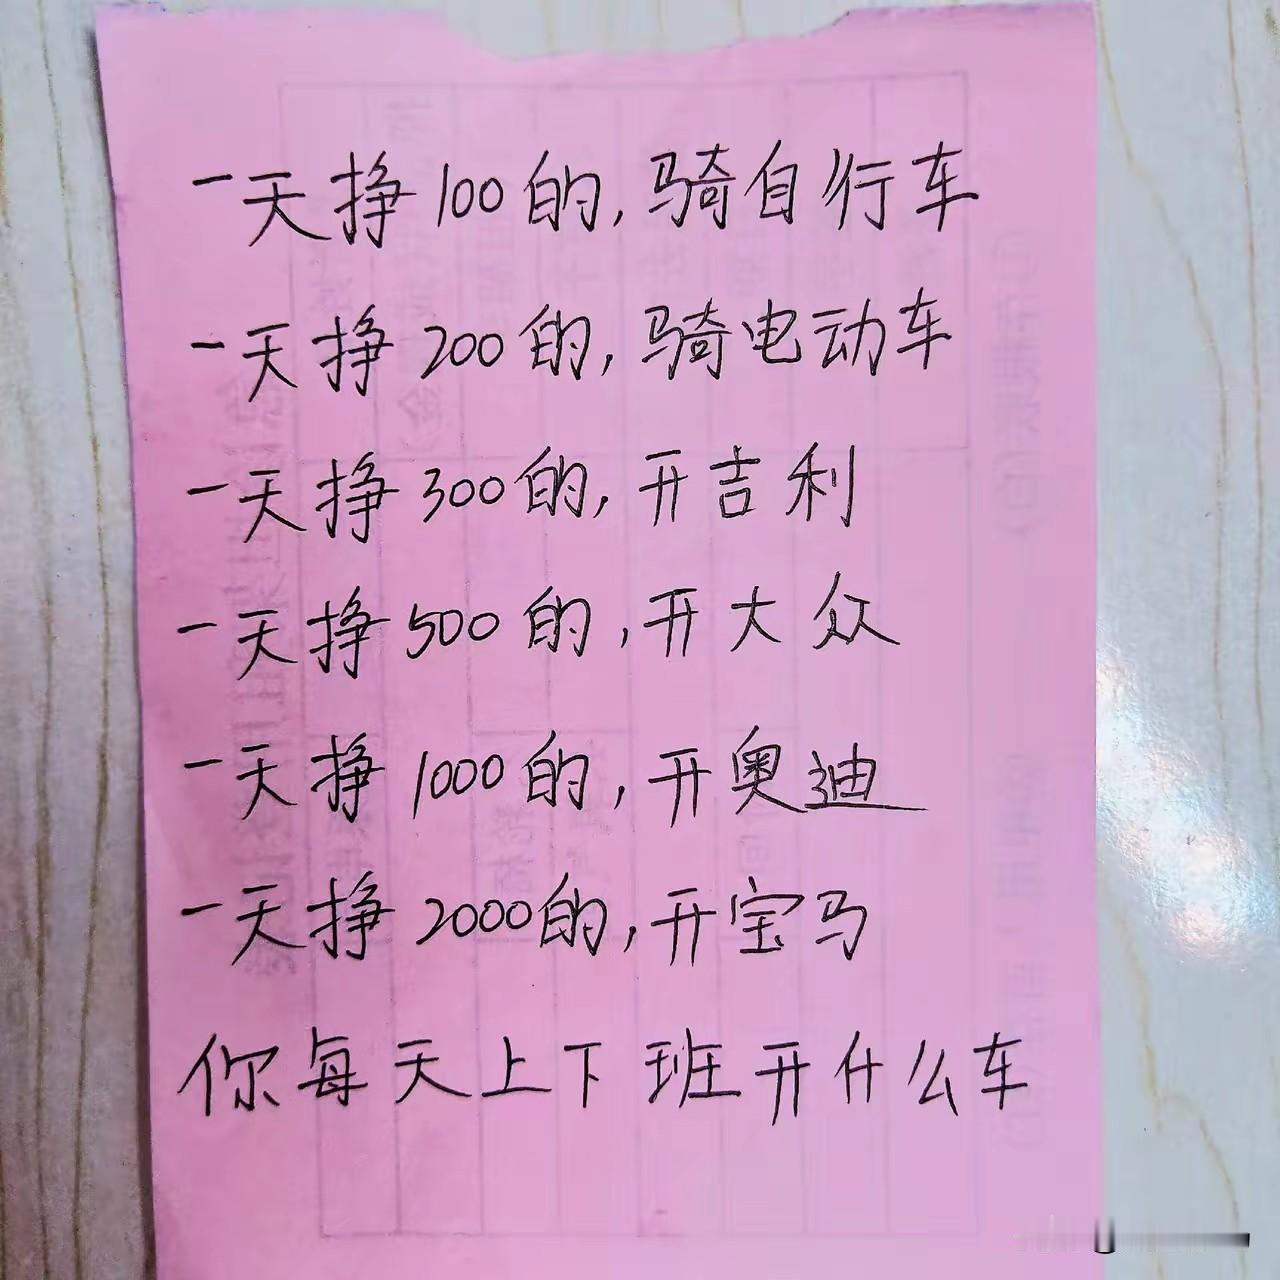 一天挣100的,骑自行车
一天挣200的,骑电动车
一天挣300的,开吉利
一天挣500的,开大众
一天挣1000的,开奥迪
一天挣2000的,开宝马
你每天上下班开什么车